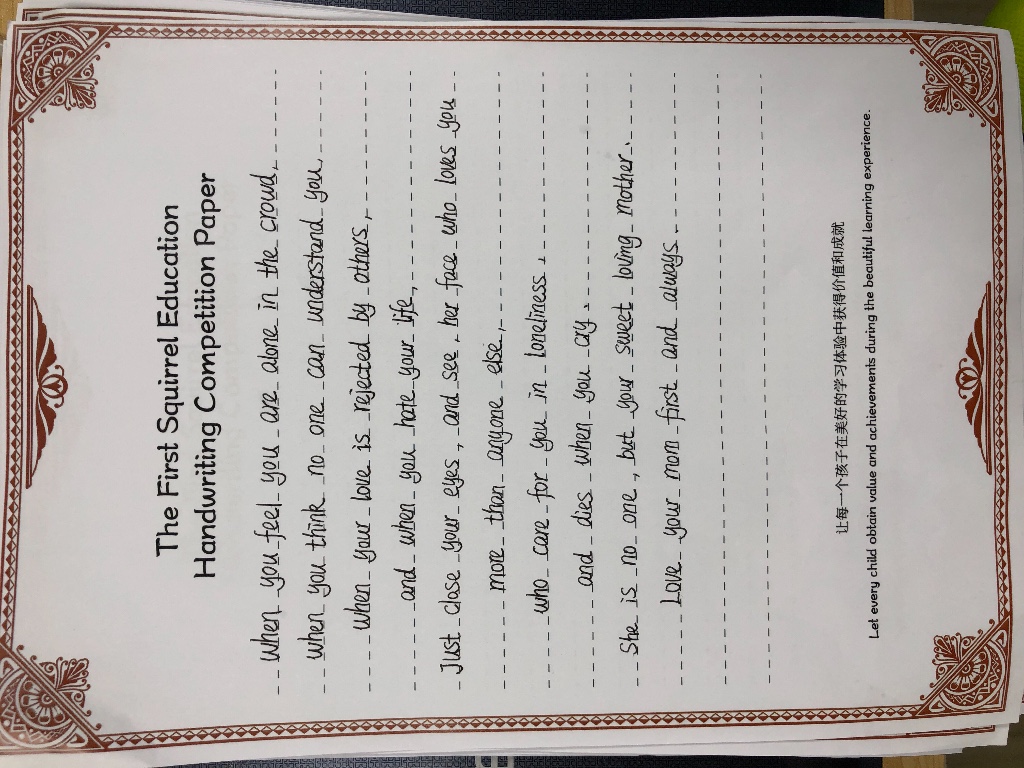 The First Squirrel Education
Handwriting Competition Paper
When you feel you are alone in the crowd,
When you think no one can understand you
When your love is rejected by others,
and when you hate your life,
Just close your eyes, and see, her face who loves you
more than anyone else,
who care for you in loneliness,
and dies when you cry.
She is no one, but your sweet loving mother.
Love your mom first and always.
让每一个孩子在美好的学习体验中获得价值和成就
Let every child obtain value and achievements during the beautiful learning experience.